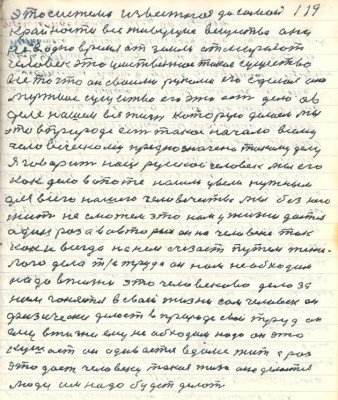 это система известная до самой 119
крайности все живущие вещества она
на земле отмирают
человек это единственное такое существо
все то что он своими руками его сделал она
мертвые существо его это есть дело об
деле нашем вся жизнь которую делаем мы
это в природе есть такое начало всему
человеческому предназначено такому делу
Я говорит наш русской человек мы его
как дело в поте нашли увели нужным
для всего нашего человечества мы без него
жить не сможем это нам у жизни дается
один раз а во второй он на человеке так
как и всегда на нем счезает путем тяже
лого дела т/е труда он нам необходим
надо в жизни это человеково дело за
ним гонятся в своей жизни сам человек он
физически делает в природе свой труд он
ему в жизни ему необходим надо он это
кушает он одивается в доме жить раз
это дает человеку такая жизнь она делается
люди им надо будет делат